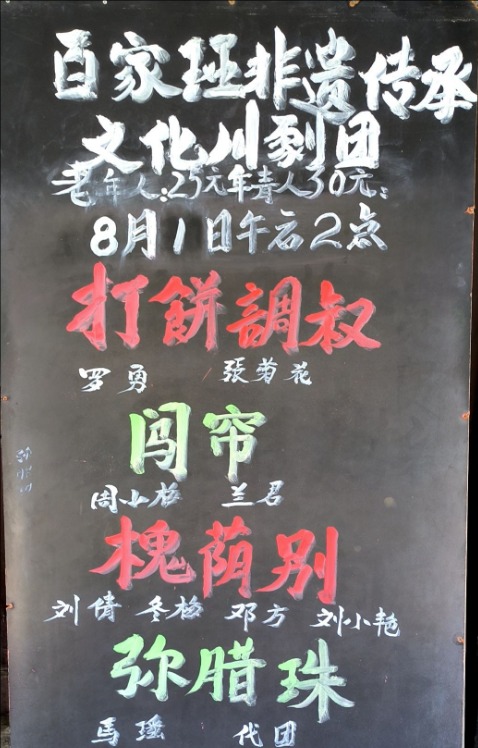 百家班非遗传承
文化川剧团
老年人:25元年青人30元:
8月1日午后2点
打餅調叔
罗勇 張菊花
闯帘
周小梅 兰君
槐荫别
刘倩 冬梅 邓方 刘小艳
弥腊珠
馬瑶 代团